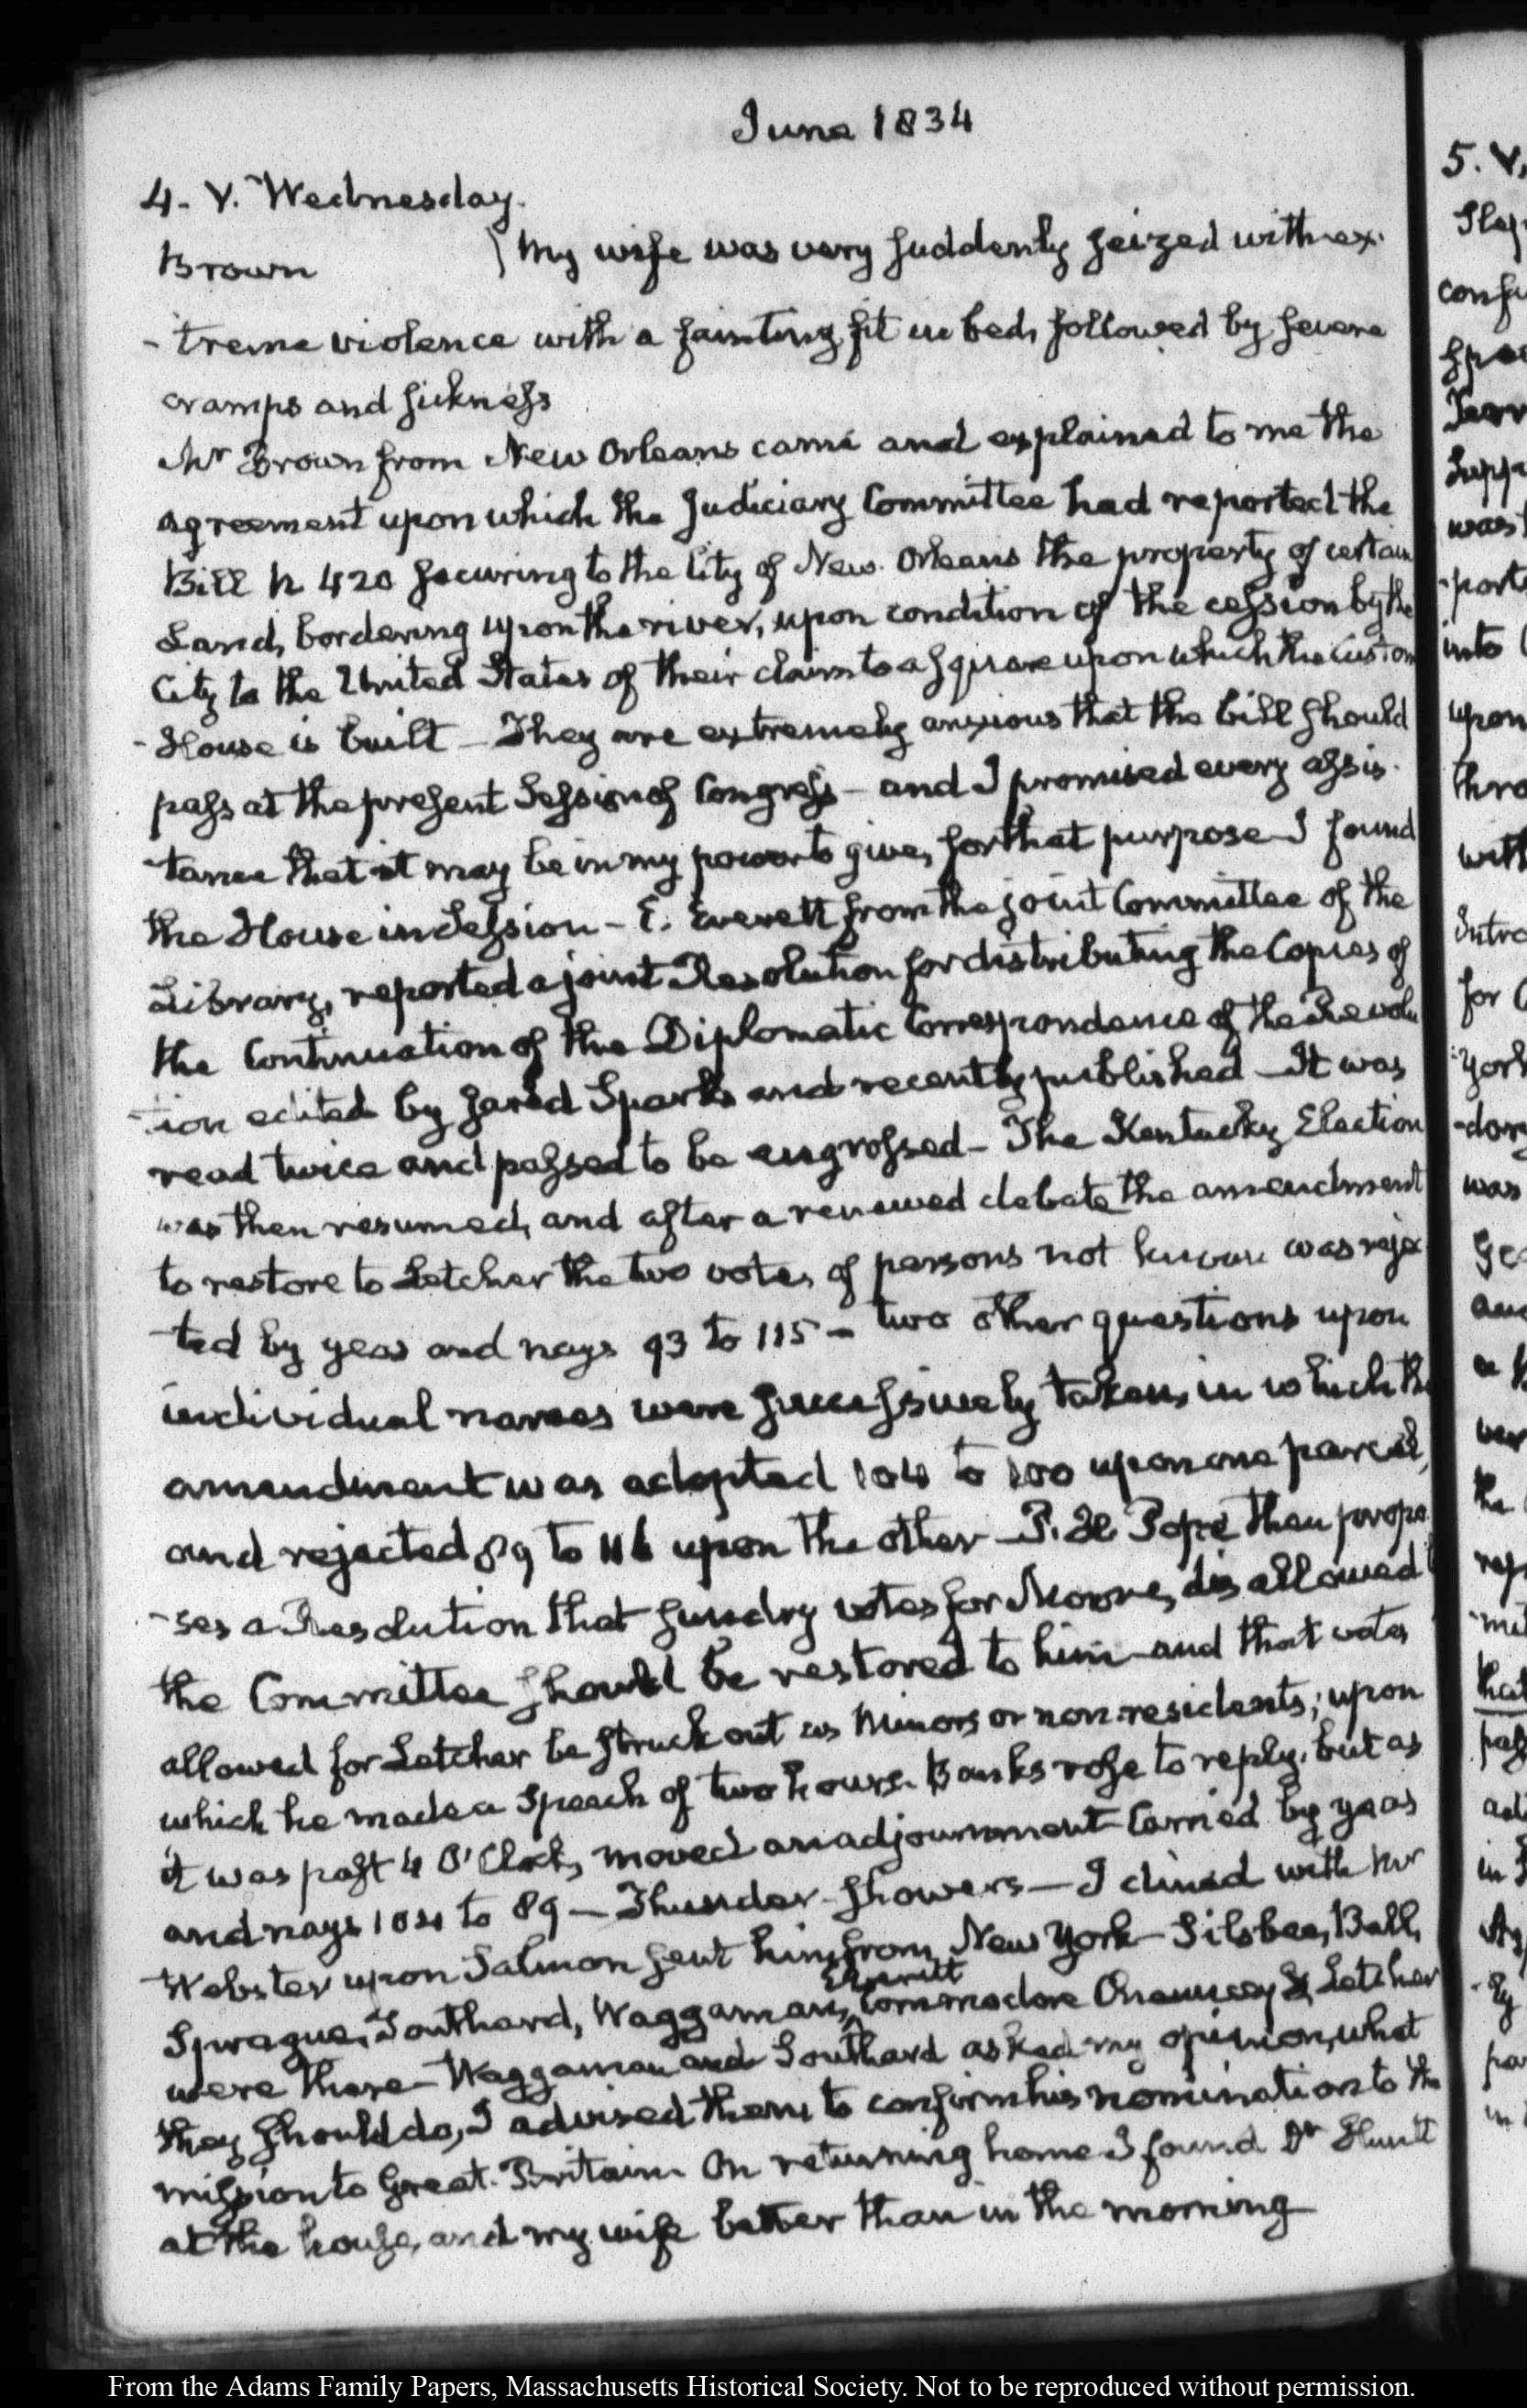 June 1834
4. V. Wednesday.
Brown } My wife was very suddenly seized with ex-
-treme violence with a fainting fit in bed, followed by severe
cramps and sickness
Mr Brown from New Orleans came and explained to me the
agreement upon which the Judiciary Committee had reported the
Bill h 420 securing to the City of New Orleans the property of certain
Land, bordering upon the river, upon condition of the cession by the
City to the United States of their claim to a square upon which the Custom
-House is built – They are extremely anxious that the bill should
pass at the present Session of Congress – and I promised every assis-
-tance that it may be in my power to give, for that purpose I found
the House in Session – E. Everett from the joint Committee of the
Library, reported a joint Resolution for distributing the Copies of
the Continuation of the Diplomatic Correspondence of the Revolu
-tion edited by Jared Sparks and recently published – It was
read twice and passed to be engrossed – The Kentucky Election
was then resumed, and after a renewed debate the amendment
to restore to Letcher the two votes, of persons not known was rejec
-ted by yeas and nays 93 to 115 – two other questions upon
individual names were successively taken, in which the
amendment was adopted 104 to 100 upon one parcel,
and rejected 89 to 116 upon the other – P. H Pope then propo
-ses a Resolution that sundry votes for Moore, disallowed
the Committee should be restored to him – and that votes
allowed for Letcher be struck out as Minors or non-residents; upon
which he made a Speech of two hours. Banks rose to reply, but as
it was past 4 O'Clock, moved an adjournment – carried by yeas
and nays 104 to 89 – Thunder-showers – I dined with Mr
Webster upon Salmon sent him from New York – Silsbee, Ball,
Sprague, Southard, Waggaman, Everett Commodore Chauncey & Letcher
were there – Waggaman and Southard asked my opinion, what
they should do, I advised them to confirm his nomination to the
mission to Great-Britain. On returning home I found Dr Hunt
at the house, and my wife better than in the morning
5. V.
into
upon
for
was
the
that
From the Adams Family Papers, Massachusetts Historical Society. Not to be reproduced without permission.